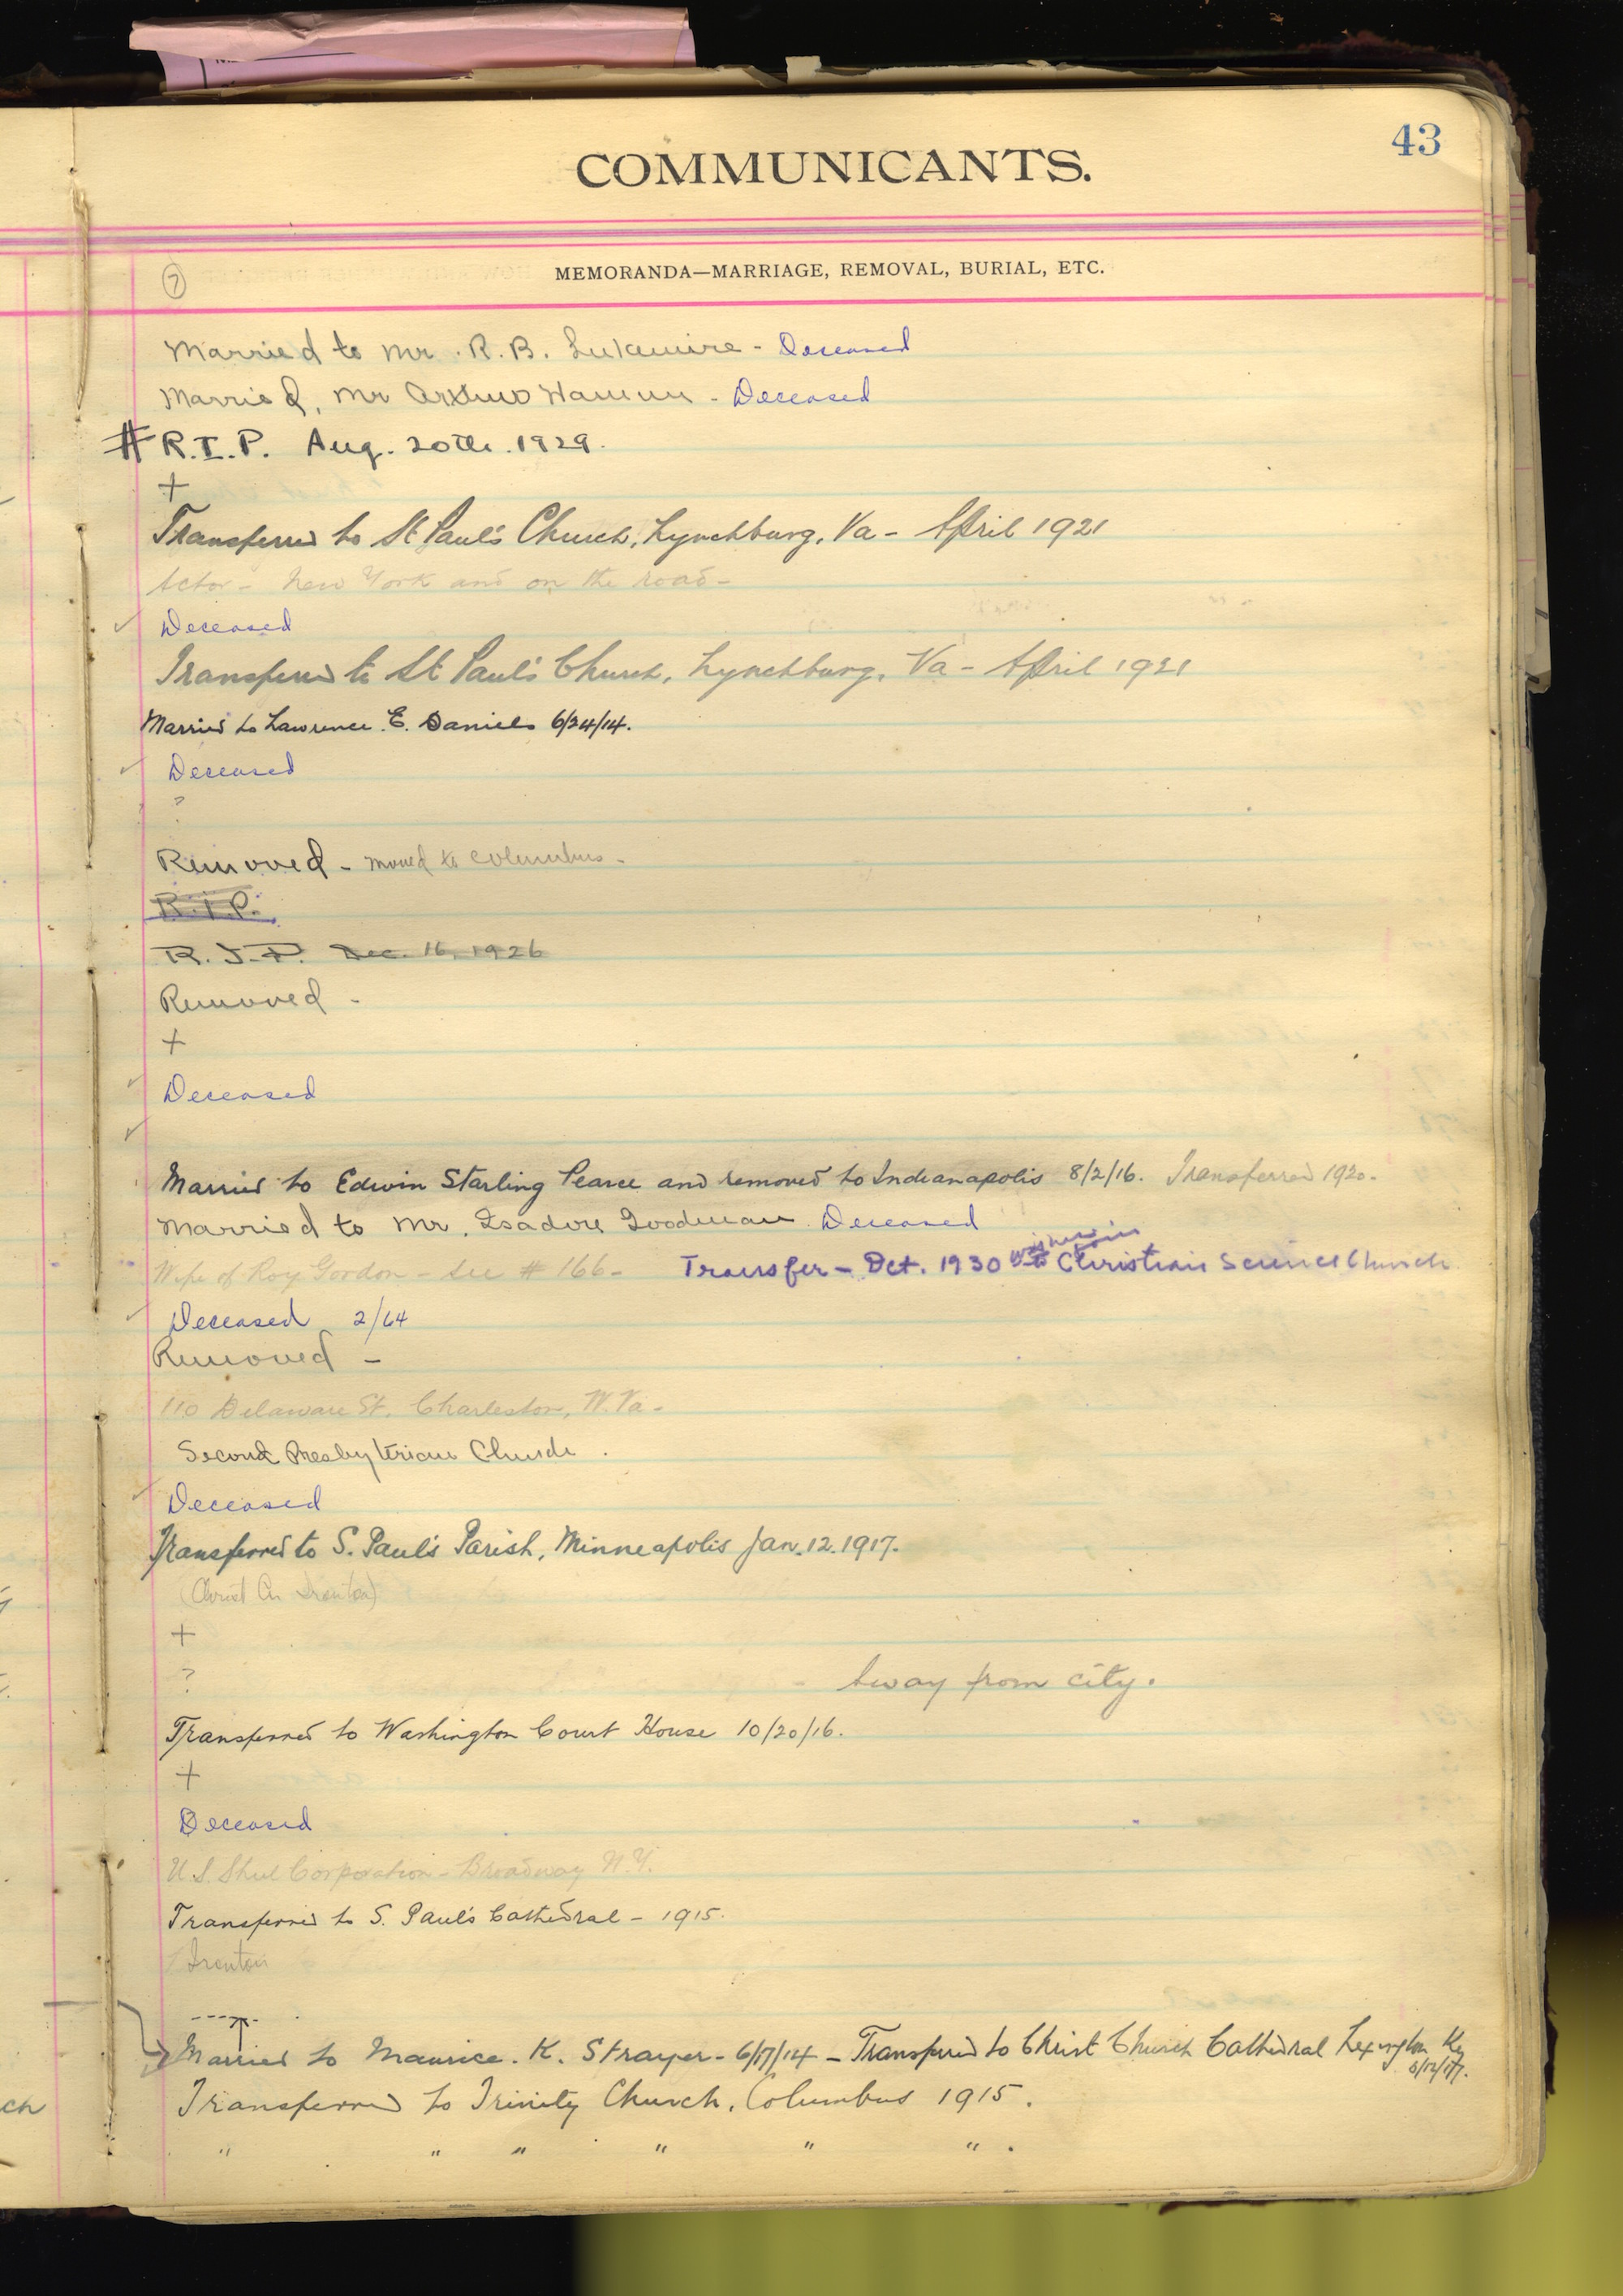 43
COMMUNICANTS.
MEMORANDA—MARRIAGE, REMOVAL, BURIAL, ETC.
7
Married to Mr. R. B. - Deceased
Married, Mr - Deceased
# R.I.P. Aug. 20th. 1929.
+
Transferred to St Paul's Church, Lynchburg, Va - April 1921
Actor - New York and on the road -
✓ Deceased
Transferred to St Paul's Church, Lynchburg, Va - April 1921
Married to Lawrence E. Daniels 6/24/14.
✓ Deceased
?
Removed - moved to Columbus -
R.I.P.
R.I.P. Dec. 16, 1926
Removed -
+
✓ Deceased
✓
Married to Edwin Starling Pearce and removed to Indianapolis 8/2/16. Transferred 1920.
Married to Mr. Isadore Goodman Deceased
Wife of Roy Gordon - See # 166 - Transfer - Oct. 1930 to Christian Science Church
✓ Deceased 2/64
Removed -
110 Delaware St. Charleston, W. Va -
Second Presbyterian Church .
✓ Deceased
Transferred to S. Paul's Parish, Minneapolis Jan. 12. 1917.
(Christ Ch Ironton)
+
? Away from city.
Transferred to Washington Court House 10/20/16.
+
Deceased
U.S. Corporation - Broadway N.Y.
Transferred to S. Paul's Cathedral - 1915.
Ironton
Married to Maurice. K. Strayer - 6/17/14 - Transferred to Christ Church Cathedral Lexington Ky
Transferred to Trinity Church, Columbus 1915.
" " " " " " .
ch